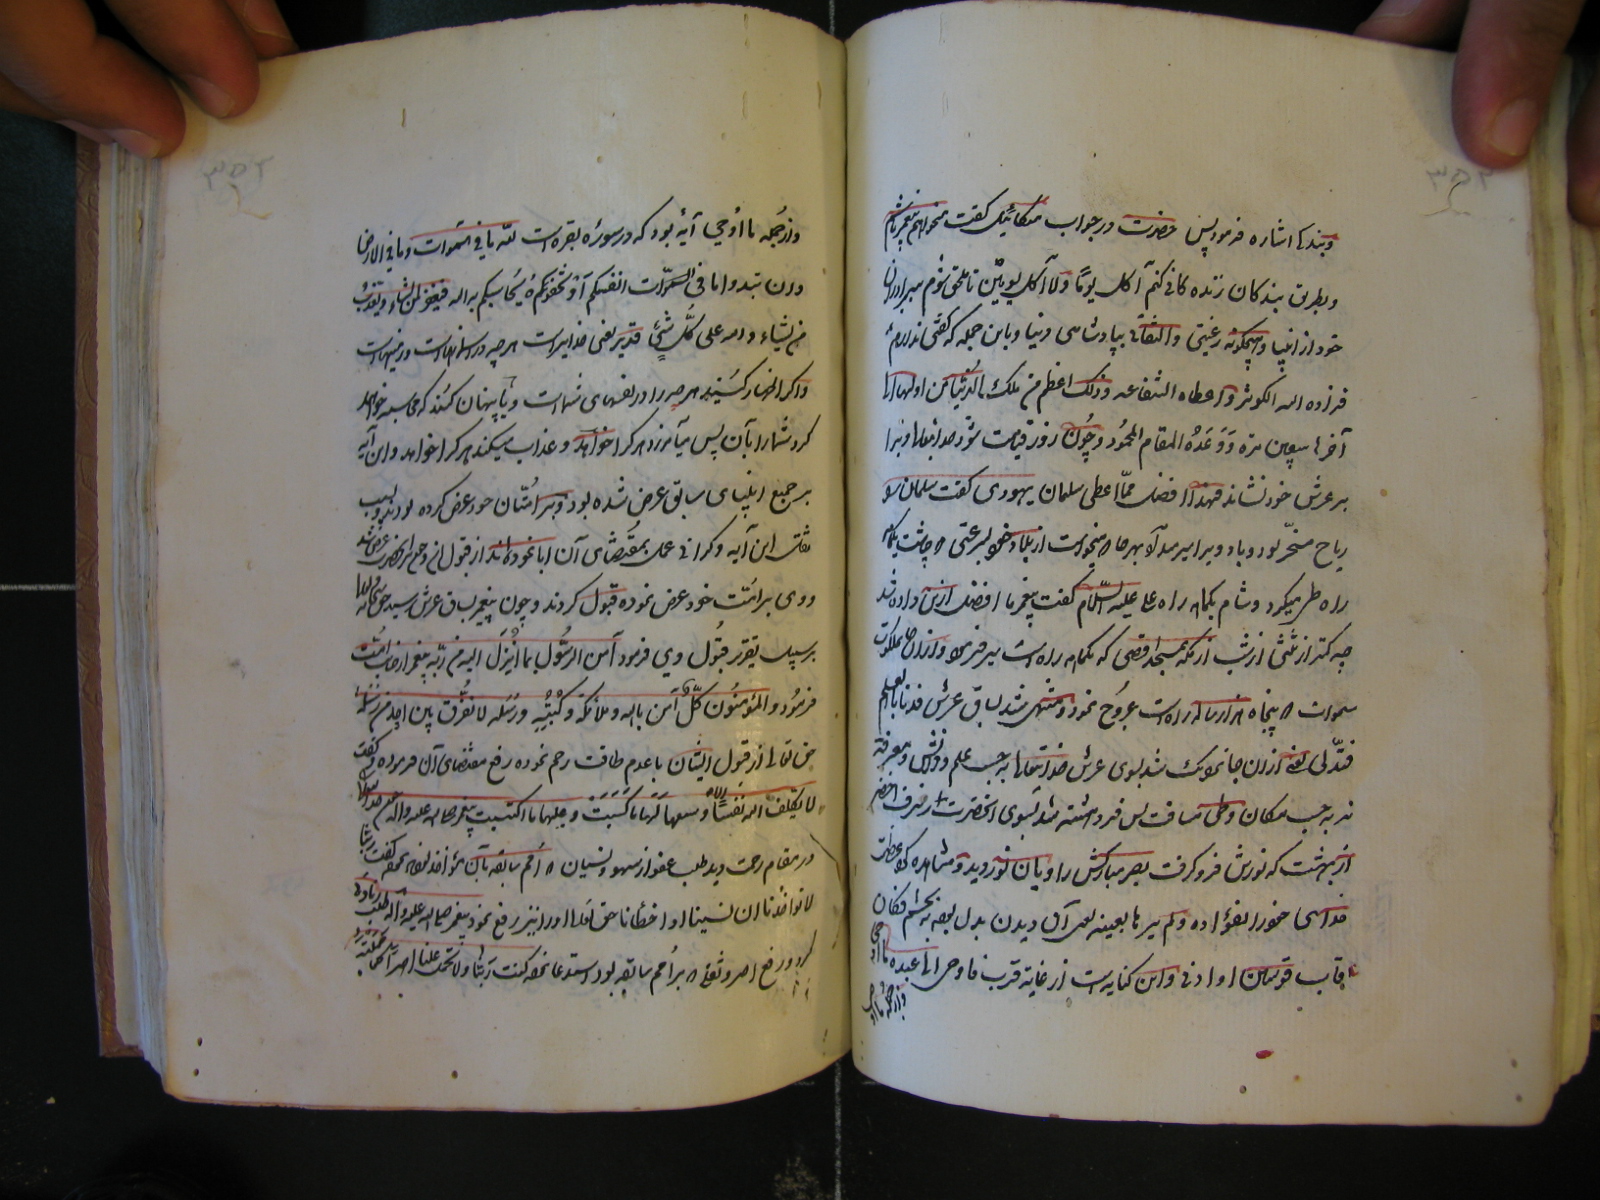 وبندها اشاره فرمود پس حضرت در جواب میکائیل گفت میخواهم پیغمبر باشم
وبطریق بندگان زنده کانی کنم آکل یومًا ولا آکل یومین تا ملحق شوم ببرادران
خود از انبیا وهیچگونه رغبتی والتفاتی بپادشاهی دنیا وباین جمله که گفتی ندارم
فزاده الله الکوثر واعطاه الشفاعه وذلک اعظم من ملک الدنیا من اولها الی
آخرها سبعین مرة ووعده المقام المحمود وچون روز قیامت شود خدایتعالی اورا
بر عرش خود نشاند فهذا افضل مما اعطی سلمان یهودی گفت سلیمان را
ریاح مسخر بود وباد ویرا بهرجا میخواست از بلاد خود چاشت یکماهه
راه طی میکرد وشام یکماهه راه علی علیه السلام گفت پیغمبر ما افضل ازین داده شد
چه کمتر از ثلثی از شب از مکه بمسجد اقصی که یکماهه راه است سیر فرمود وازان جا بملکوت
سموات پنجاه هزار ساله راه است عروج نمود ومنتهی شد بساق عرش فدنا بالعلم
فتدلی یعنی ازان جا نزدیک شد بسوی عرش خدایتعالی بحسب علم ودانش ومعرفة
نه بحسب مکان وطی مسافت پس فرو هشته شد بسوی آنحضرت رفرف اخضر
از بهشت که نورش فرو گرفت بصر مبارکش را وبان نور دید ومشاهده کرد عظمت
خداى خود را بفؤاده ولم یرها بعینه یعنی آن دیدن بدل بود نه بچشم فکان
قاب قوسین او ادنی واین کنایه است از غایة قرب فاوحی الی عبده ما اوحی
واز جمله ما اوحی
واز جمله ما اوحی آیهٔ بود که در سورهٔ بقره است لله ما فی السموات وما فی الارض
وان تبدوا ما فی انفسکم او تخفوه یحاسبکم به الله فیغفر لمن یشاء ویعذب
من یشاء والله علی کل شیء قدیر یعنی خدایراست هر چه در آسمانهاست ودر زمینهاست
واگر اظهار کنید هر چه را در نفسهای شماست ویا پنهان کنید که محاسبه خواهد
کرد شما را بآن پس میآمرزد هر کرا خواهد وعذاب میکند هر کرا خواهد واین آیه
بر جمیع انبیای سابق عرض شده بود وبر امتان خود عرض کرده بودند وبسبب
ثقل این آیه وگرانی عمل بمقتضای آن ابا نموده اند از قبول آن
ووی بر امت خود عرض نموده قبول کردند وچون پیغمبر بساق عرش رسید حق تعالی
برسبیل تقریر قبول وی فرمود آمن الرسول بما انزل الیه من ربه پیغمبر از جانب امت
فرمود والمؤمنون کل آمن بالله وملائکته وکتبه ورسله لا نفرق بین احد من رسله
حق تعالی از قبول ایشان با عدم طاقت رحم نموده رفع مقتضای آن فرموده وگفت
لا یکلف الله نفسا الا وسعها لها ما کسبت وعلیها ما اکتسبت پیغمبر صلی الله علیه واله
در مقام رحمت دید طلب عفو از سهو ونسیان امم سابقه بآن مؤاخذ نموده گفت ربنا
لا تؤاخذنا ان نسینا او اخطأنا حق تعالی اورا نیز رفع نمود پیغمبر صلی الله علیه واله طلب زیادتی
کرد ورفع اصر وثقل بر امم سابقه بود استدعا نموده گفت ربنا ولا تحمل علینا اصرا کما حملته